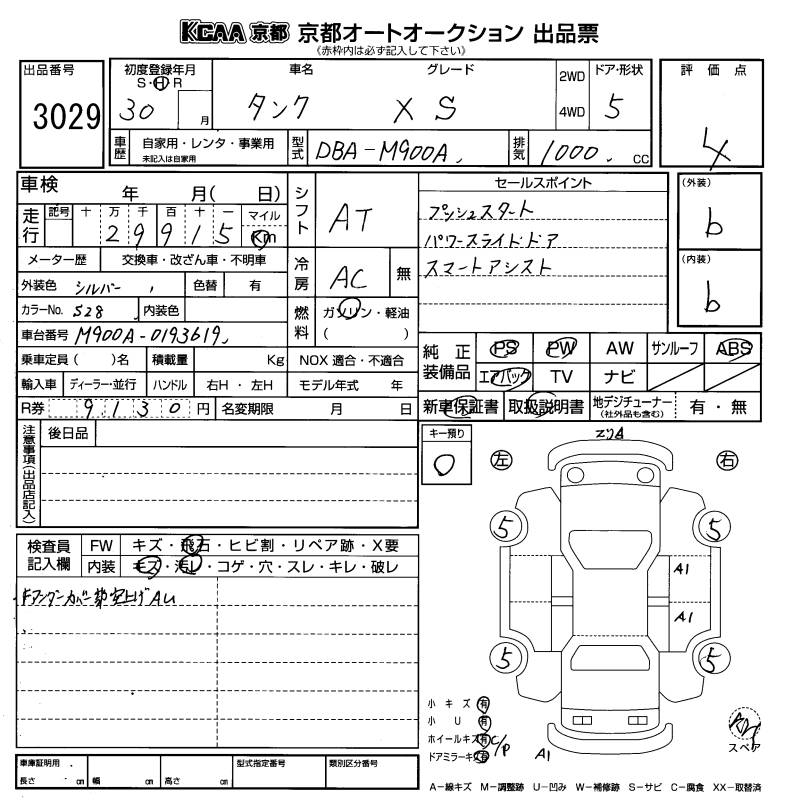 KCAA 京都 京都オートオークション 出品票
(赤枠内は必ず記入して下さい)
出品番号
3029
初度登録年月
S・H・R
30 月
車名
タンク
グレード
X S
2WD
4WD
ドア・形状
5
評価点
4
車歴
自家用・レンタ・事業用
未記入は自家用
型式
DBA-M900A
排気
1000 CC
車検 年 月( 日)
走行
記号 十 万 千 百 十 一
29915
マイル
Km
シフト
AT
メーター歴 交換車・改ざん車・不明車
冷房
AC 無
外装色 シルバー 色替 有
カラーNo. S28 内装色
燃料
ガソリン・軽油
( )
車台番号 M900A-0193619
乗車定員( )名 積載量 Kg NOX 適合・不適合
輸入車 ディーラー・並行 ハンドル 右H・左H モデル年式 年
R券 9130 円 名変期限 月 日
セールスポイント
プッシュスタート
パワースライドドア
スマートアシスト
(外装)
b
(内装)
b
純正装備品
PS PW AW サンルーフ ABS
エアバック TV ナビ
新車保証書 取扱説明書 地デジチューナー
(社外品も含む) 有・無
注意事項(出品店記入)
後日品
キー預り
左
右
5
5
5
5
A1
A1
検査員記入欄
FW キズ・飛石・ヒビ割・リペア跡・X要
内装 キズ・汚レ・コゲ・穴・スレ・キレ・破レ
小キズ 有
小U 有
ホイールキズ 有 C/P
ドアミラーキズ 有
A1
スペア
車庫証明用
長さ cm 幅 cm 高さ cm
型式指定番号
類別区分番号
A-線キズ M-調整跡 U-凹み W-補修跡 S-サビ C-腐食 XX-取替済